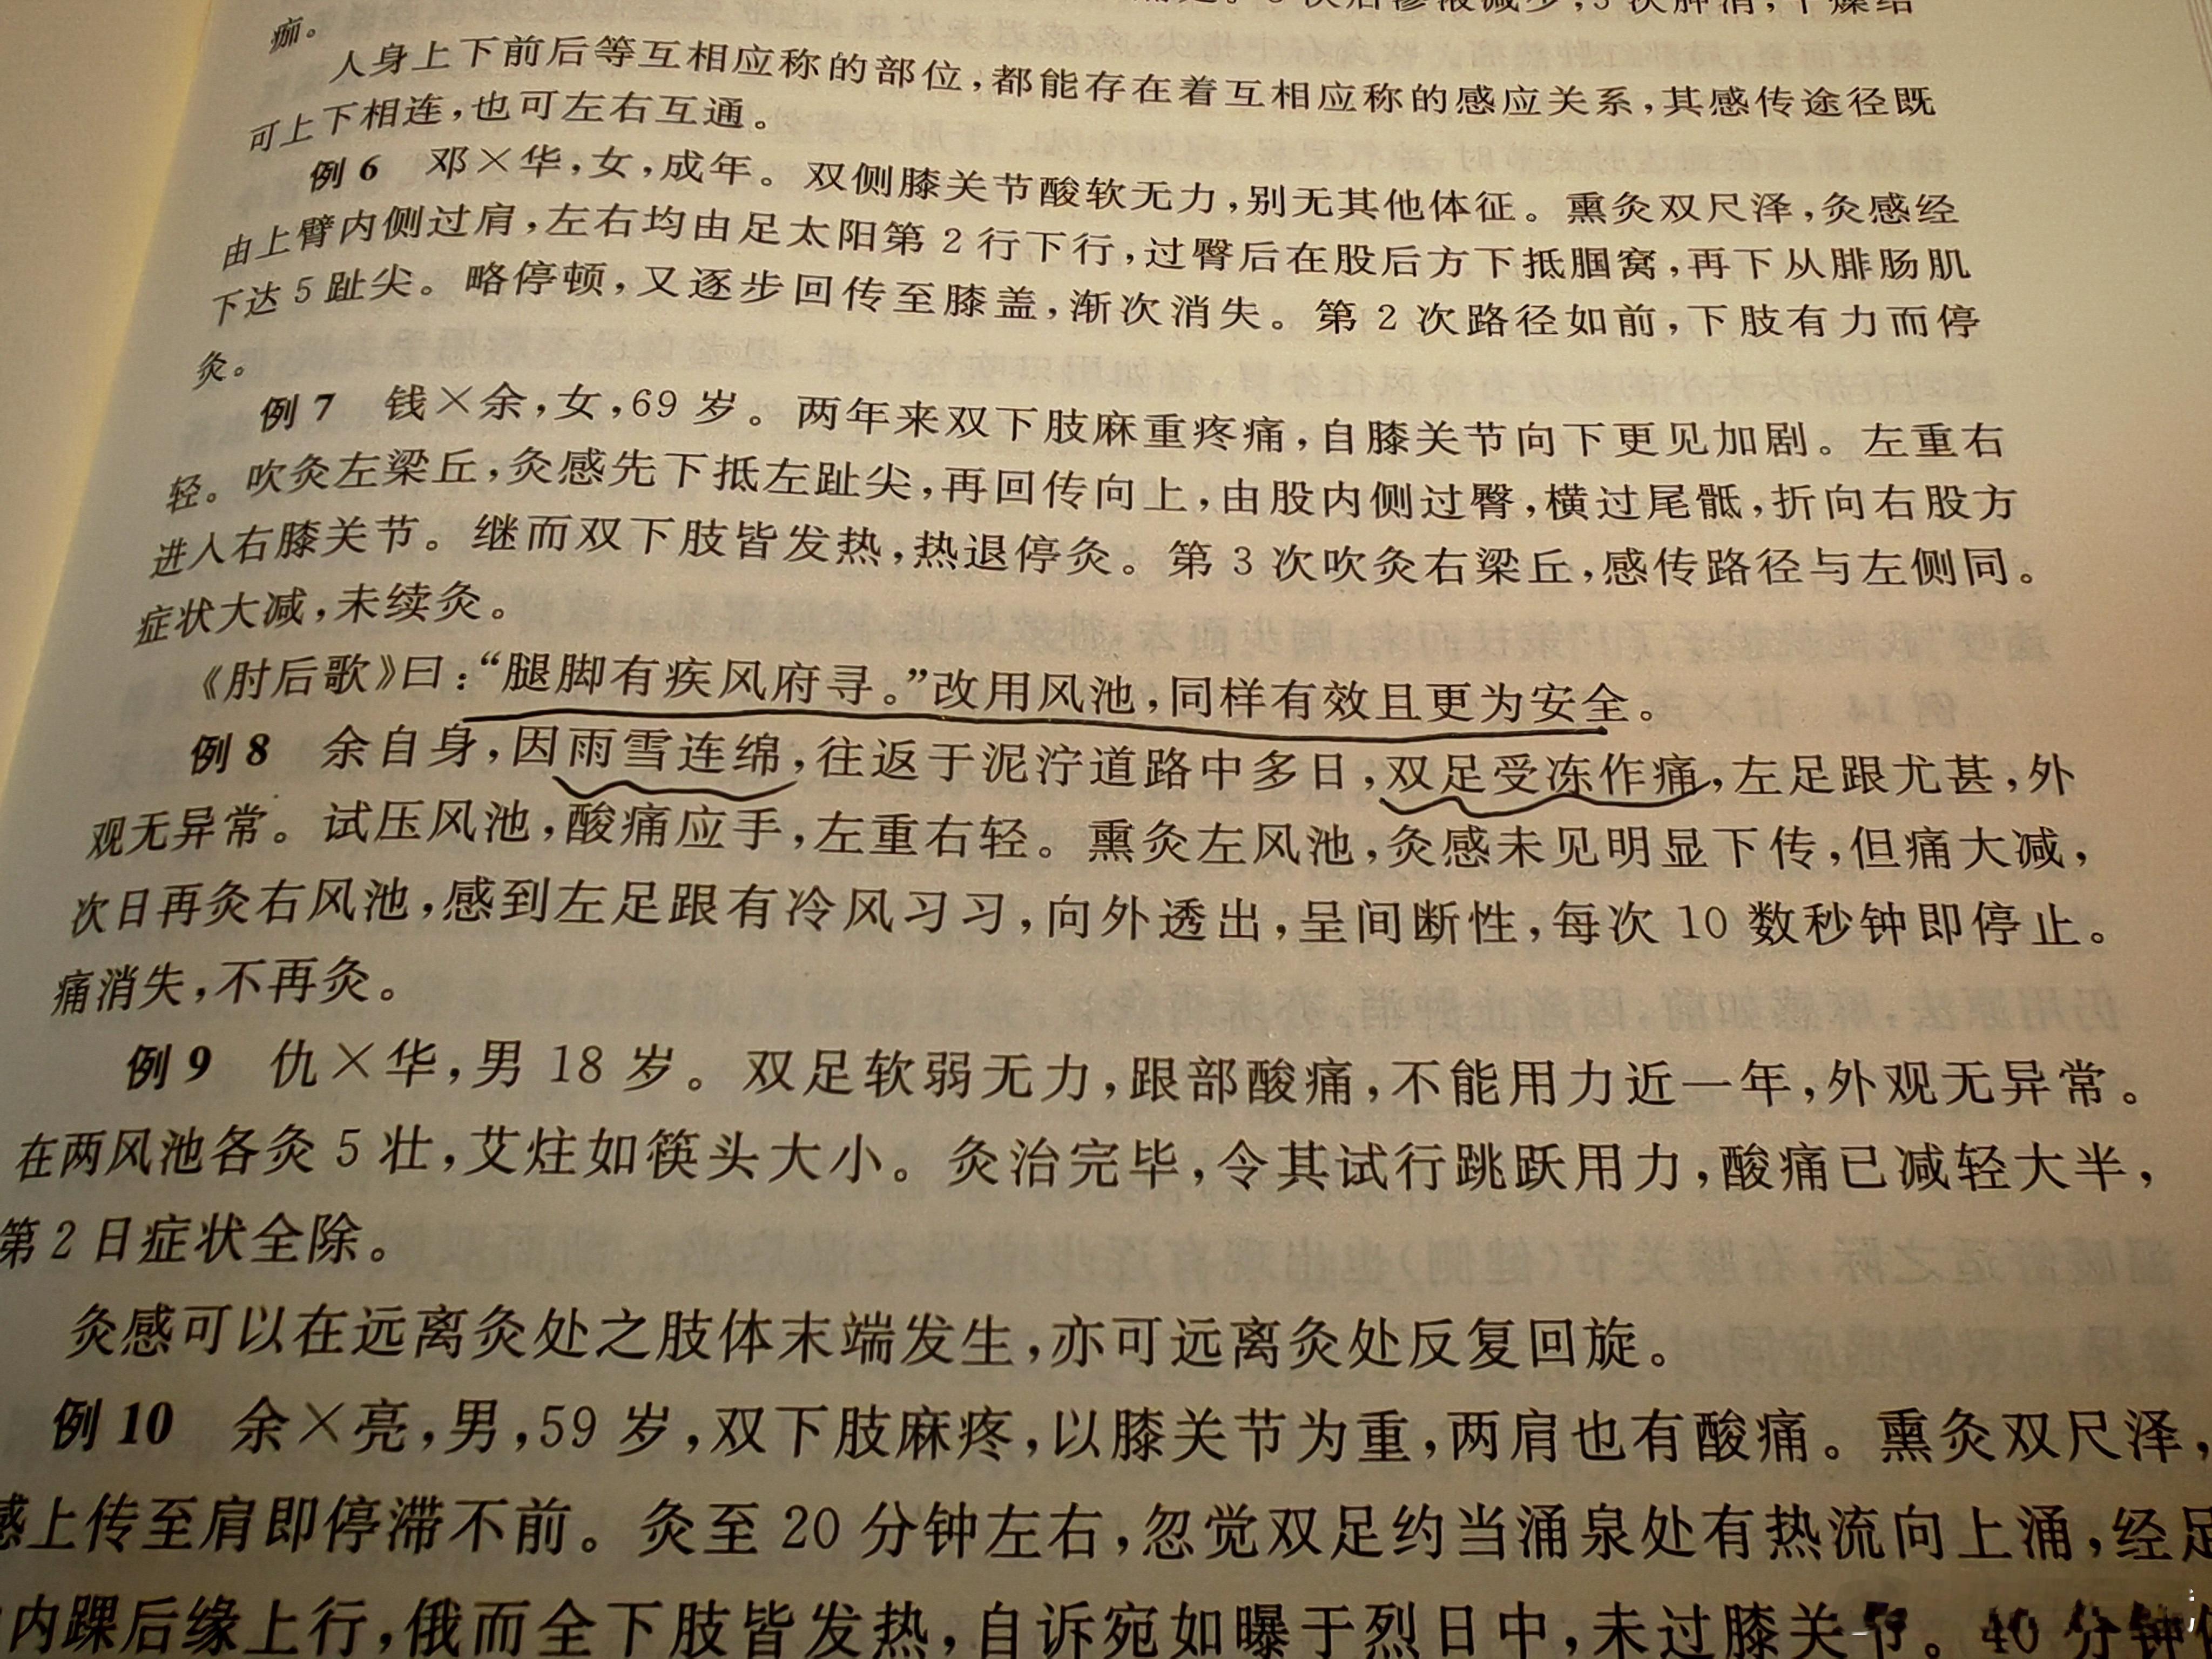 次后渗液减少,3次肿消,干燥结
痂。
人身上下前后等互相应称的部位,都能存在着互相应称的感应关系,其感传途径既
可上下相连,也可左右互通。
例6 邓×华,女,成年。双侧膝关节酸软无力,别无其他体征。熏灸双尺泽,灸感经
由上臂内侧过肩,左右均由足太阳第2行下行,过臀后在股后方下抵腘窝,再下从腓肠肌
下达5趾尖。略停顿,又逐步回传至膝盖,渐次消失。第2次路径如前,下肢有力而停
灸。
例7 钱×余,女,69岁。两年来双下肢麻重疼痛,自膝关节向下更见加剧。左重右
轻。吹灸左梁丘,灸感先下抵左趾尖,再回传向上,由股内侧过臀,横过尾骶,折向右股方
进入右膝关节。继而双下肢皆发热,热退停灸。第3次吹灸右梁丘,感传路径与左侧同。
症状大减,未续灸。
《肘后歌》曰:“腿脚有疾风府寻。”改用风池,同样有效且更为安全。
例8 余自身,因雨雪连绵,往返于泥泞道路中多日,双足受冻作痛,左足跟尤甚,外
观无异常。试压风池,酸痛应手,左重右轻。熏灸左风池,灸感未见明显下传,但痛大减,
次日再灸右风池,感到左足跟有冷风习习,向外透出,呈间断性,每次10数秒钟即停止。
痛消失,不再灸。
例9 仇×华,男18岁。双足软弱无力,跟部酸痛,不能用力近一年,外观无异常。
在两风池各灸5壮,艾炷如筷头大小。灸治完毕,令其试行跳跃用力,酸痛已减轻大半,
第2日症状全除。
灸感可以在远离灸处之肢体末端发生,亦可远离灸处反复回旋。
例10 余×亮,男,59岁,双下肢麻疼,以膝关节为重,两肩也有酸痛。熏灸双尺泽,
感上传至肩即停滞不前。灸至20分钟左右,忽觉双足约当涌泉处有热流向上涌,经足
内踝后缘上行,俄而全下肢皆发热,自诉宛如曝于烈日中,未过膝关节。40分钟